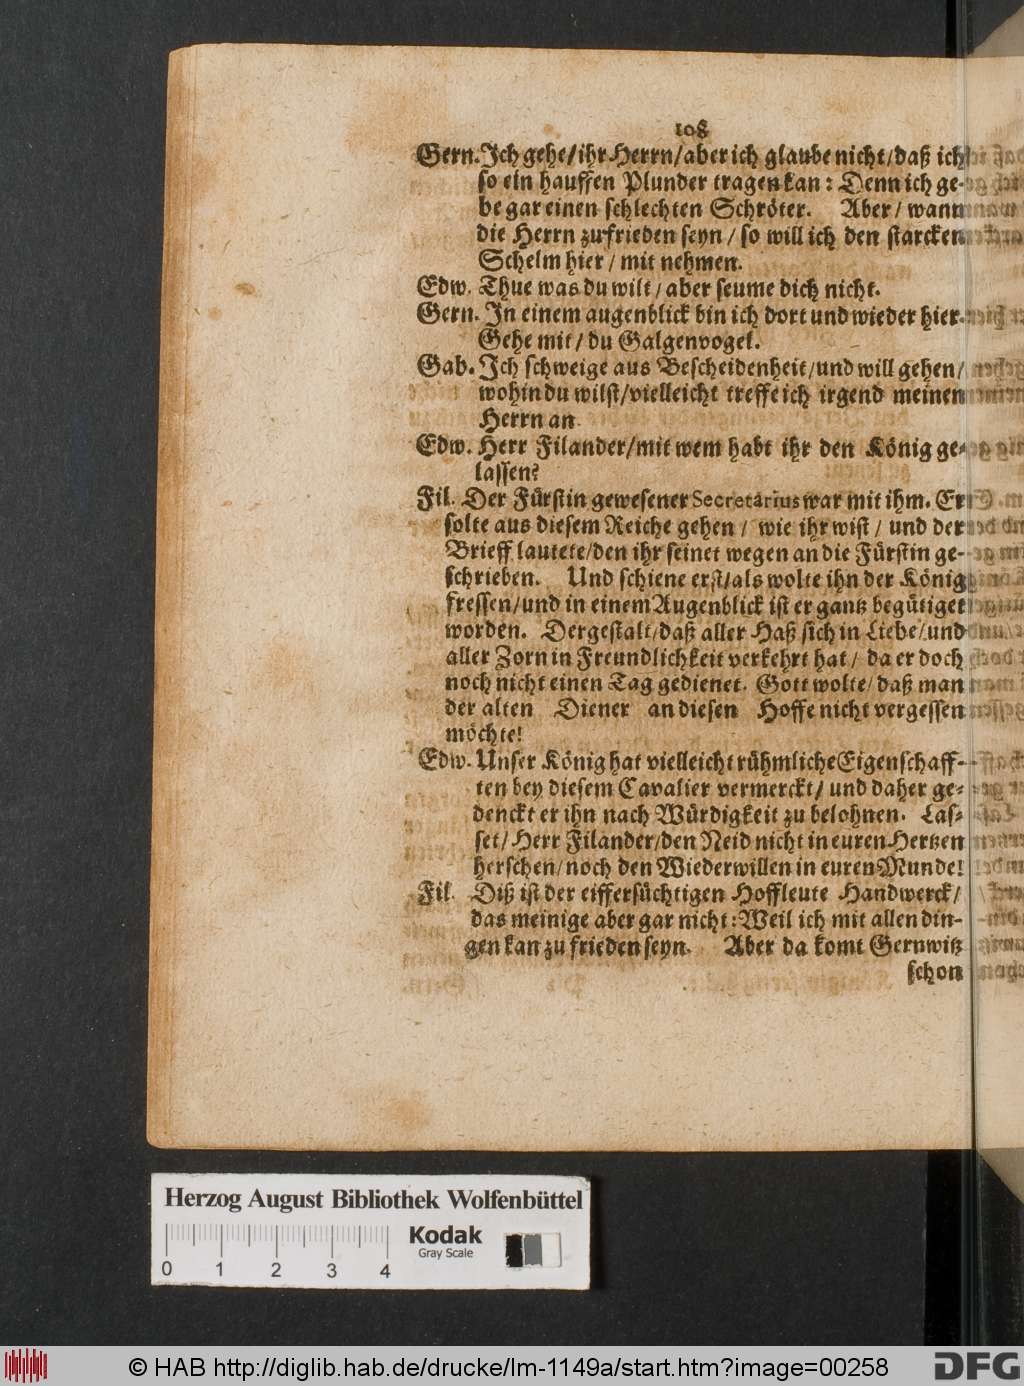 108
Gern. Ich gehe/ ihr Herrn/ aber ich glaube nicht/ daß ich
so ein hauffen Plunder tragen kan: Denn ich ge-
be gar einen schlechten Schröter. Aber/ wann
die Herrn zufrieden seyn/ so will ich den starcken
Schelm hier/ mit nehmen.
Edw. Thue was du wilt/ aber seume dich nicht.
Gern. In einem augenblick bin ich dort und wieder hier.
Gehe mit/ du Galgenvogel.
Gab. Ich schweige aus Bescheidenheit/ und will gehen/
wohin du wilst/ vielleicht treffe ich irgend meinen
Herrn an.
Edw. Herr Filander/ mit wem habt ihr den König ge-
lassen?
Fil. Der Fürstin gewesener Secretarius war mit ihm. Er
solte aus diesem Reiche gehen/ wie ihr wist/ und der
Brieff lautete/ den ihr seinet wegen an die Fürstin ge-
schrieben. Und schiene erst/ als wolte ihn der König
fressen/ und in einem Augenblick ist er gantz begütiget
worden. Dergestalt/ daß aller Haß sich in Liebe/ und
aller Zorn in Freundlichkeit verkehrt hat/ da er doch
noch nicht einen Tag gedienet. Gott wolte/ daß man
der alten Diener an diesen Hoffe nicht vergessen
möchte!
Edw. Unser König hat vielleicht rühmliche Eigenschaff-
ten bey diesem Cavalier vermerckt/ und daher ge-
denckt er ihn nach Würdigkeit zu belohnen. Las-
set/ Herr Filander/ den Neid nicht in euren Hertzen
herschen/ noch den Wiederwillen in euren Munde!
Fil. Diß ist der eiffersüchtigen Hoffleute Handwerck/
das meinige aber gar nicht: Weil ich mit allen din-
gen kan zu frieden seyn. Aber da komt Gernwitz
schon
Herzog August Bibliothek Wolfenbüttel
Kodak
Gray Scale
0 1 2 3 4
© HAB http://diglib.hab.de/drucke/lm-1149a/start.htm?image=00258
DFG